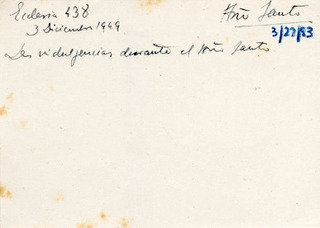 Ecclesia 438
Año Santo
3 Diciembre 1949
3/22/53
Las indulgencias durante el Año Santo